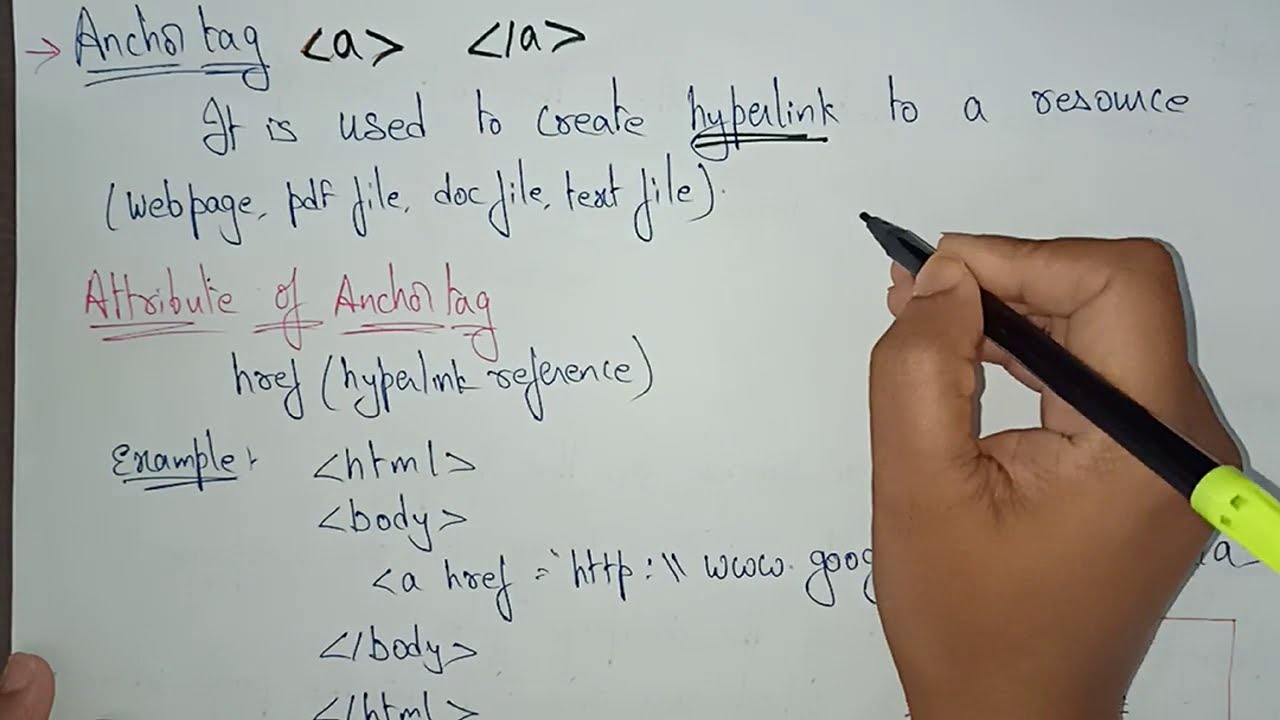 → Anchor tag <a> </a>
It is used to create hyperlink to a resource
(webpage, pdf file, doc file, text file).
Attribute of Anchor tag
href (hyperlink reference)
Example: <html>
<body>
<a href = "http:\\www.goog /a
</body>
</html>